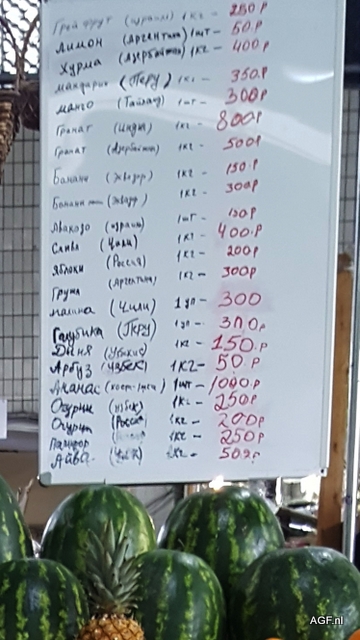 Грейпфрут (израиль) 1кг - 250 Р
Лимон (Аргентина) 1шт - 50.Р
Хурма (Азербайжан) 1кг - 400 Р
мандарин (Перу) 1кг - 350.Р
манго (Тайланд) 1шт - 300Р
Гранат (Индия) 1кг - 800Р
Гранат (Азербайжан) 1кг - 500Р
Банани (Эквадор) 1кг - 150.Р
Банани (Эквадор) 1кг - 300Р
Авакадо (израиль) 1шт - 130.Р
Слива (Чили) 1кг - 400.Р
Яблоки (Россия) 1кг - 200Р
Груша (Аргентина) 1кг - 300Р
малина (Чили) 1уп - 300
Галубика (ПЕРУ) 1уп - 300р
Диня (Узбикис) 1кг - 150.Р
Арбуз (УЗБЕК) 1КГ - 50.Р
Ананас 1шт - 1000Р
Огурцы (узбек) 1кг - 250Р
Огурцы (Россия) 1кг - 200Р
Памидор 1кг - 250Р
Айва 1кг -
AGF.nl